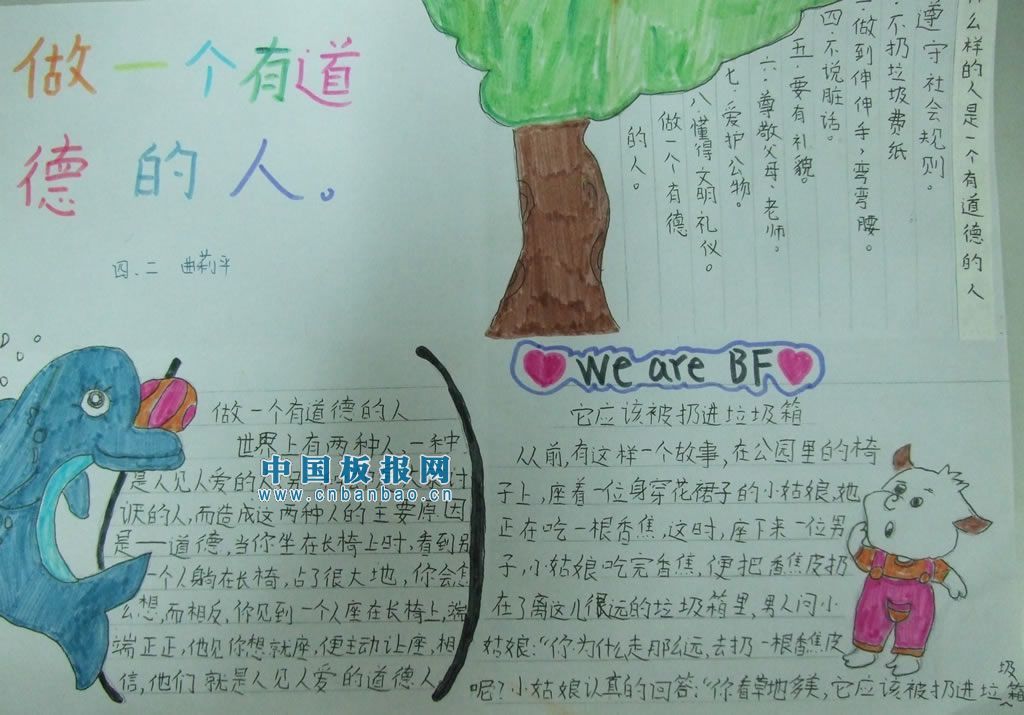 做一个有道
德的人。
四、二 曲莉平
么样的人是一个有道德的人
遵守社会规则。
不扔垃圾费纸
做到伸伸手，弯弯腰。
四.不说脏话。
五.要有礼貌。
六.尊敬父母、老师。
七.爱护公物。
八懂得文明礼仪。
做一个有德
的人。
We are BF
做一个有道德的人
世界上有两种人，一种
是人见人爱的人
讨
厌的人，而造成这两种人的主要原因
是——道德，当你坐在长椅上时，看到另
一个人躺在长椅，占了很大地，你会怎
么想，而相反，你见到一个人座在长椅上，端
端正正，他见你想就座，便主动让座，相
信，他们就是人见人爱的道德人
中国板报网
www.cnbanbao.cn
它应该被扔进垃圾箱
从前，有这样一个故事，在公园里的椅
子上，座着一位身穿花裙子的小姑娘，她
正在吃一根香焦，这时，座下来一位男
子，小姑娘吃完香焦，便把香焦皮扔
在了离这儿很远的垃圾箱里，男人问小
姑娘：“你为什么走那么远，去扔一根香焦皮
呢？小姑娘认真的回答：“你看草地多美，它应该被扔进垃圾箱